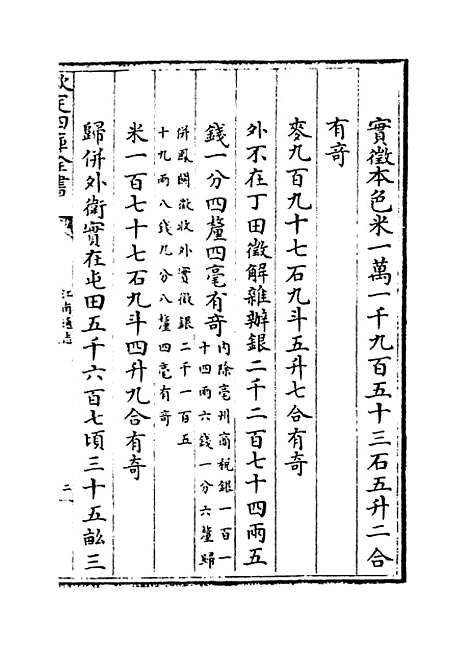 實徵本色米一萬一千九百五十三石五升二合
有奇
麥九百九十七石九斗五升七合有奇
外不在丁田徵解雜辦銀二千二百七十四兩五
錢一分四釐四毫有奇內除亳州商稅銀一百一
十四兩六錢一分六釐歸
併鳳關徵收外實徵銀二千一百五
十九兩八錢九分八釐四毫有奇
米一百七十七石九斗四升九合有奇
歸併外衛實在屯田五千六百七頃三十五畝三
欽定四庫全書
江南通志
二